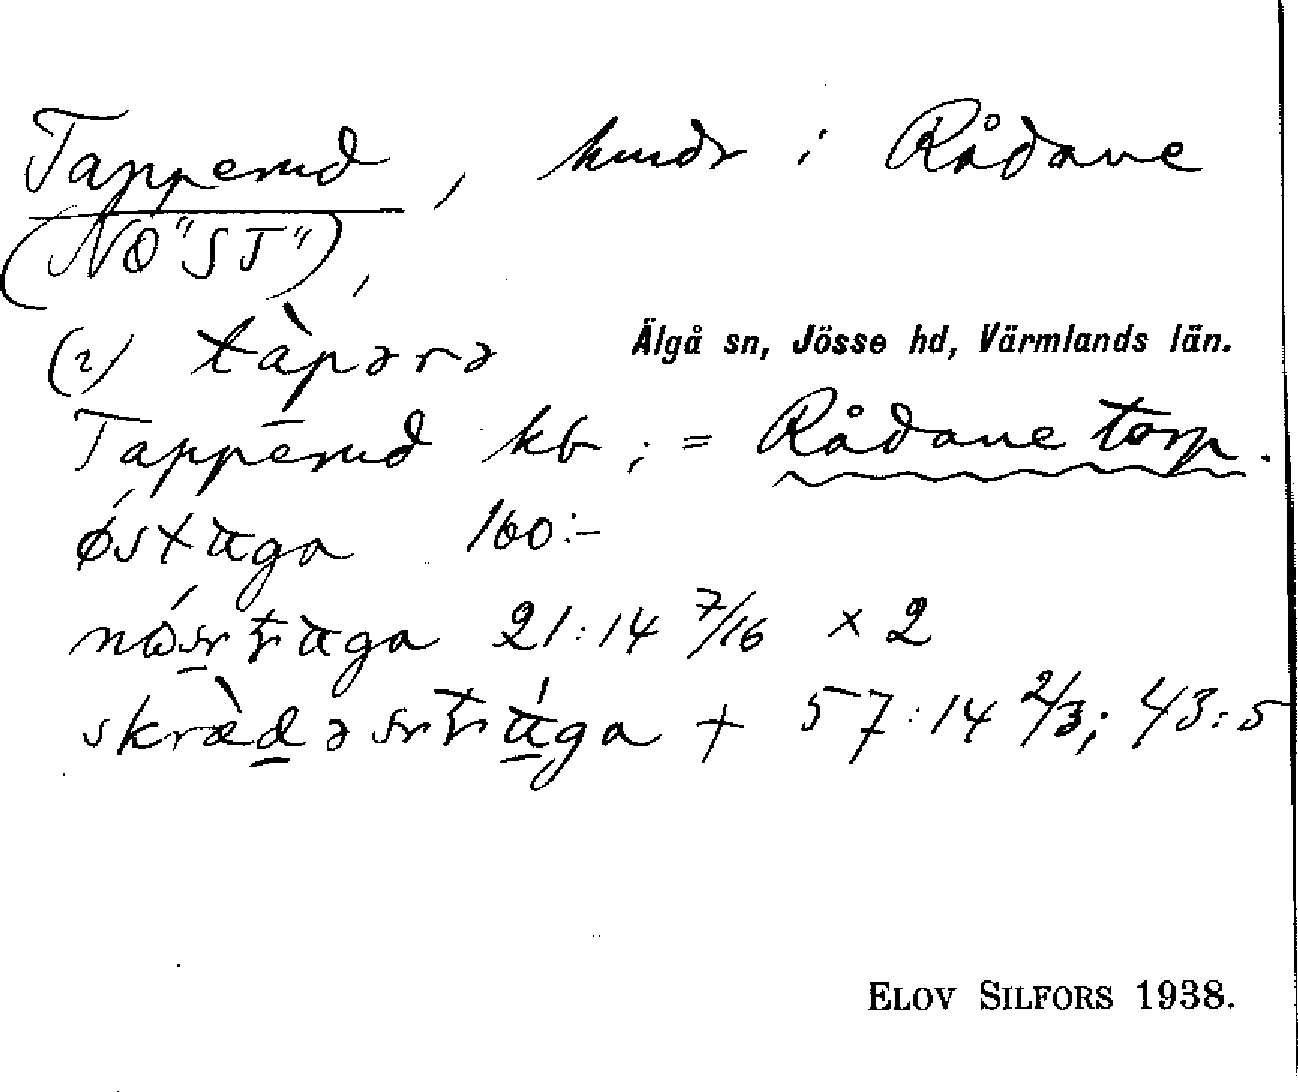 Tapperud, hmdr i Rådane
(NO "ST"),
(i) tàpərə
Älgå sn, Jösse hd, Värmlands län.
Tapperud kb; = Rådane torp.
østuga 160:-
nørstuga 21:14 7/16 × 2
skrædərstuga + 57:14 2/3; 43:5
ELOV SILFORS 1938.